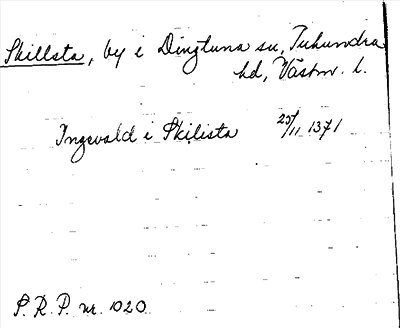 Skillsta, by i Dingtuna sn, Tuhundra
hd, Västm. l.
Ingevald i Skilista 25/11 1371
P. R. P. nr. 1020